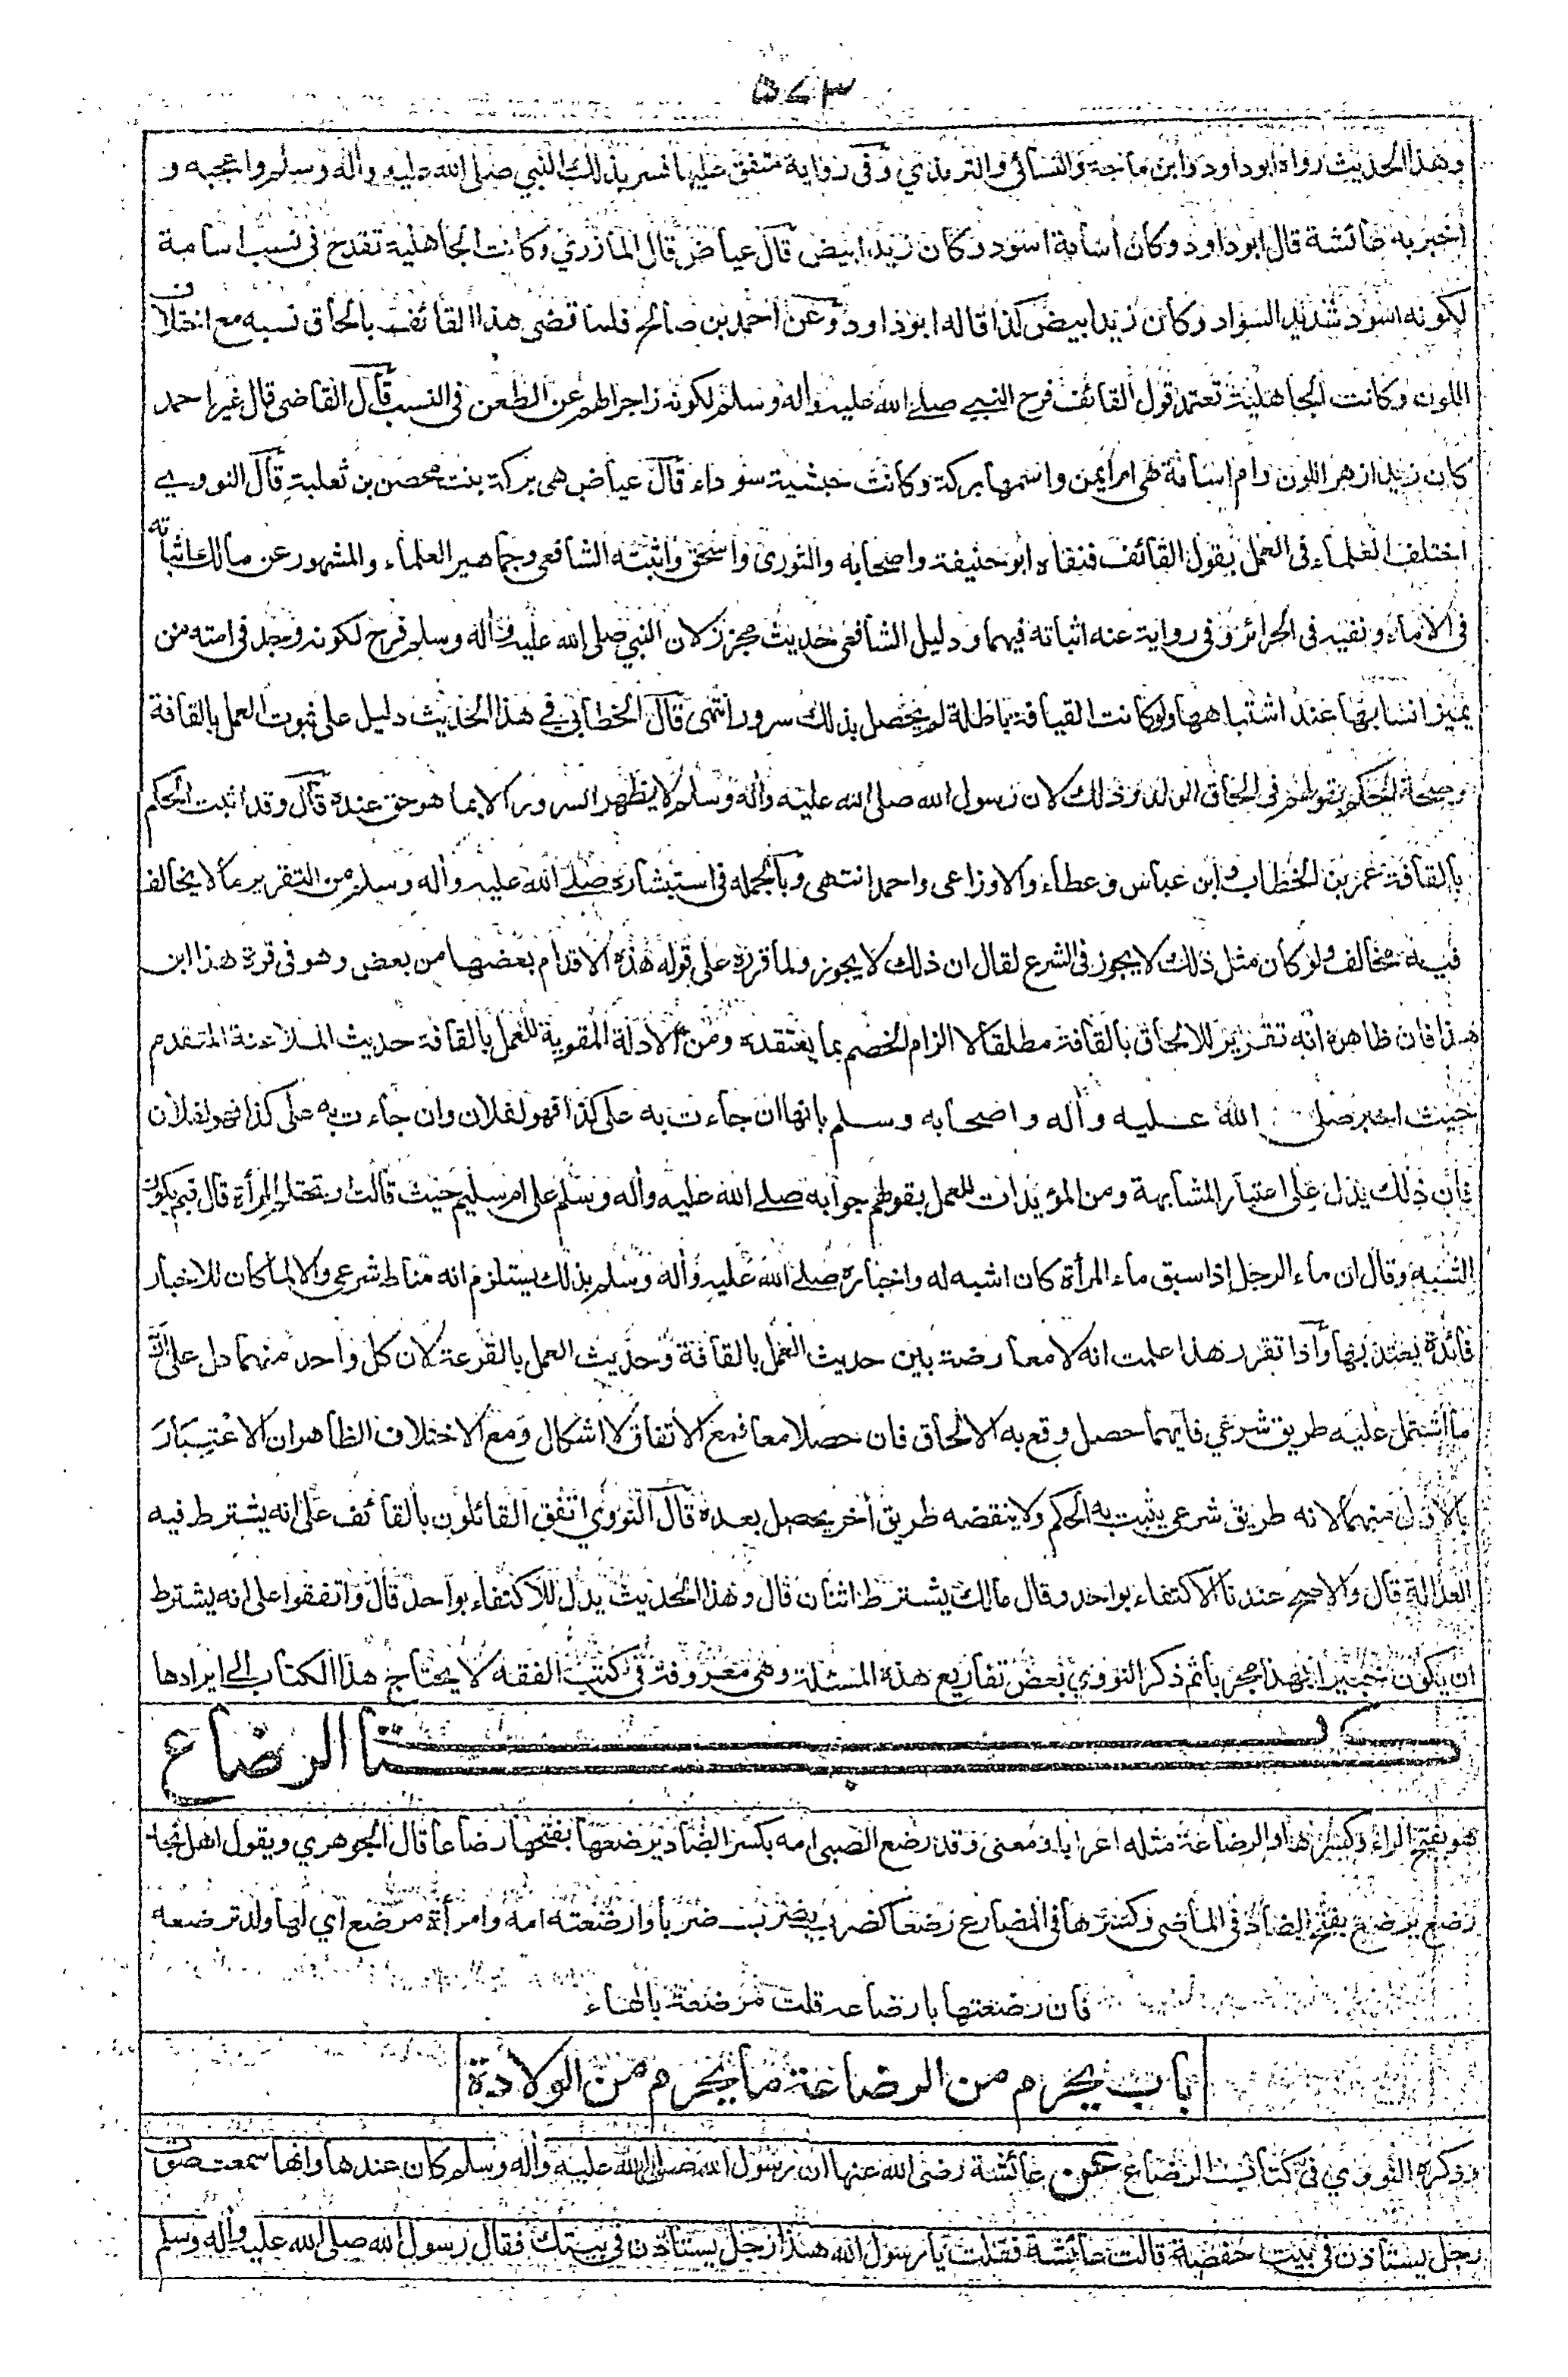 ٥٧٣
وهذا الحديث رواه ابوداود وابن ماجة والنسائى والترمذي وفى رواية متفق عليها فسر بذلك النبي صلى الله عليه وأله وسلم واعجبه و
أخبر به عائشة قال ابوداود وكان أسامة اسود وكان زيد ابيض قال عياض قال المازري وكانت الجاهلية تقدح فى نسب اسامة
لكونه اسود شديد السواد وكان زيد ابيض كذا قاله ابوداود وعن أحمد بن صالح فلما قضى هذا القائف بالحاق نسبه مع اختلاف
اللون وكانت الجاهلية تعتمد قول القائف فرح النبي صلے الله عليه وأله وسلم لكونه زاجرا لهم عن الطعن فى النسب قال القاضى قال غير احمد
كان زيد ازهر اللون وام اسامة هى ام ايمن واسمها بركة وكانت حبشية سوداء قال عياض هى بركة بنت محصن بن ثعلبة قال النووي
اختلف العلماء فى العمل بقول القائف فنفاه ابو حنيفة واصحابه والثورى واسحق واثبته الشافعى وجماهير العلماء والمشهور عن مالك اثباته
فى الاماء ونفيه فى الحرائر وفى رواية عنه اثباته فيهما ودليل الشافعى حديث مجزز لان النبي صلى الله عليه وأله وسلم فرح لكونه وجد فى امته من
يميز انسابها عند اشتباهها ولو كانت القيافة باطلة لم يحصل بذلك سرور انتهى قال الخطابى فے هذا الحديث دليل على ثبوت العمل بالقافة
وصحة الحكم بقولهم فى الحاق الولد وذلك لان رسول الله صلى الله عليه وأله وسلم لا يظهر السرور الا بما هو حق عنده قال وقد اثبت الحكم
بالقافة عمر بن الخطاب وابن عباس وعطاء والاوزاعى واحمد انتهى وبالجملة فى استبشاره صلے الله عليه وأله وسلم من التقرير مالا يخالف
فيه مخالف ولو كان مثل ذلك لا يجوز فى الشرع لقال ان ذلك لا يجوز ولما قرره على قوله هذه الاقدام بعضها من بعض وهو فى قوة هذا ابن
هذا فان ظاهره انه تقرير للالحاق بالقافة مطلقا لا الزام الخصم بما يعتقده ومن الادلة المقوية للعمل بالقافة حديث الملاعنة المتقدم
حيث اخبر صلى الله عليه وأله واصحابه وسلم بانها ان جاءت به على كذا فهو لفلان وان جاءت به على كذا فهو لفلان
فان ذلك يدل على اعتبار المشابهة ومن المؤيدات للعمل بقولهم جوابه صلے الله عليه وأله وسلم على ام سليم حيث قالت او تحتلم المرأة قال فبم يكون
الشبه وقال ان ماء الرجل اذا سبق ماء المرأة كان اشبه له واخباره صلے الله عليه وأله وسلم بذلك يستلزم انه مناط شرعى والا لما كان للاخبار
فائدة يعتد بها واذا تقرر هذا علمت انه لا معارضة بين حديث العمل بالقافة وحديث العمل بالقرعة لان كل واحد منهما دل على ان
ما اشتمل عليه طريق شرعي فأيهما حصل وقع به الالحاق فان حصلا معا فمع الاتفاق لا اشكال ومع الاختلاف الظاهر ان الاعتبار
بالاول منهما لانه طريق شرعى يثبت به الحكم ولا ينقضه طريق أخر يحصل بعده قال النووي اتفق القائلون بالقائف على انه يشترط فيه
العدالة قال والاصح عندنا الاكتفاء بواحد وقال مالك يشترط اثنان قال وهذا الحديث يدل للاكتفاء بواحد قال واتفقوا على انه يشترط
ان يكون خبيرا بهذا مجربا ثم ذكر النووي بعض تفاريع هذه المسئلة وهى معروفة فى كتب الفقه لا يحتاج هذا الكتاب الى ايرادها
كتاب الرضاع
هو بفتح الراء وكسرها والرضاعة مثله اعرابا ومعنى وقد رضع الصبى امه بكسر الضاد يرضعها بفتحها رضاعا قال الجوهري ويقول اهل نجد
رضع يرضع بفتح الضاد فى الماضى وكسرها فى المضارع رضعا كضرب يضرب ضربا وارضعته امه وامرأة مرضع اي لها ولد ترضعه
فان رضعتها بارضاعه قلت مرضعة بالهاء
باب يحرم من الرضاعة ما يحرم من الولادة
وذكره النووي فى كتاب الرضاع عن عائشة رضى الله عنها ان رسول الله صلى الله عليه وأله وسلم كان عندها وانها سمعت صوت
رجل يستاذن فى بيت حفصة قالت عائشة فقلت يا رسول الله هذا رجل يستاذن فى بيتك فقال رسول الله صلى الله عليه وأله وسلم